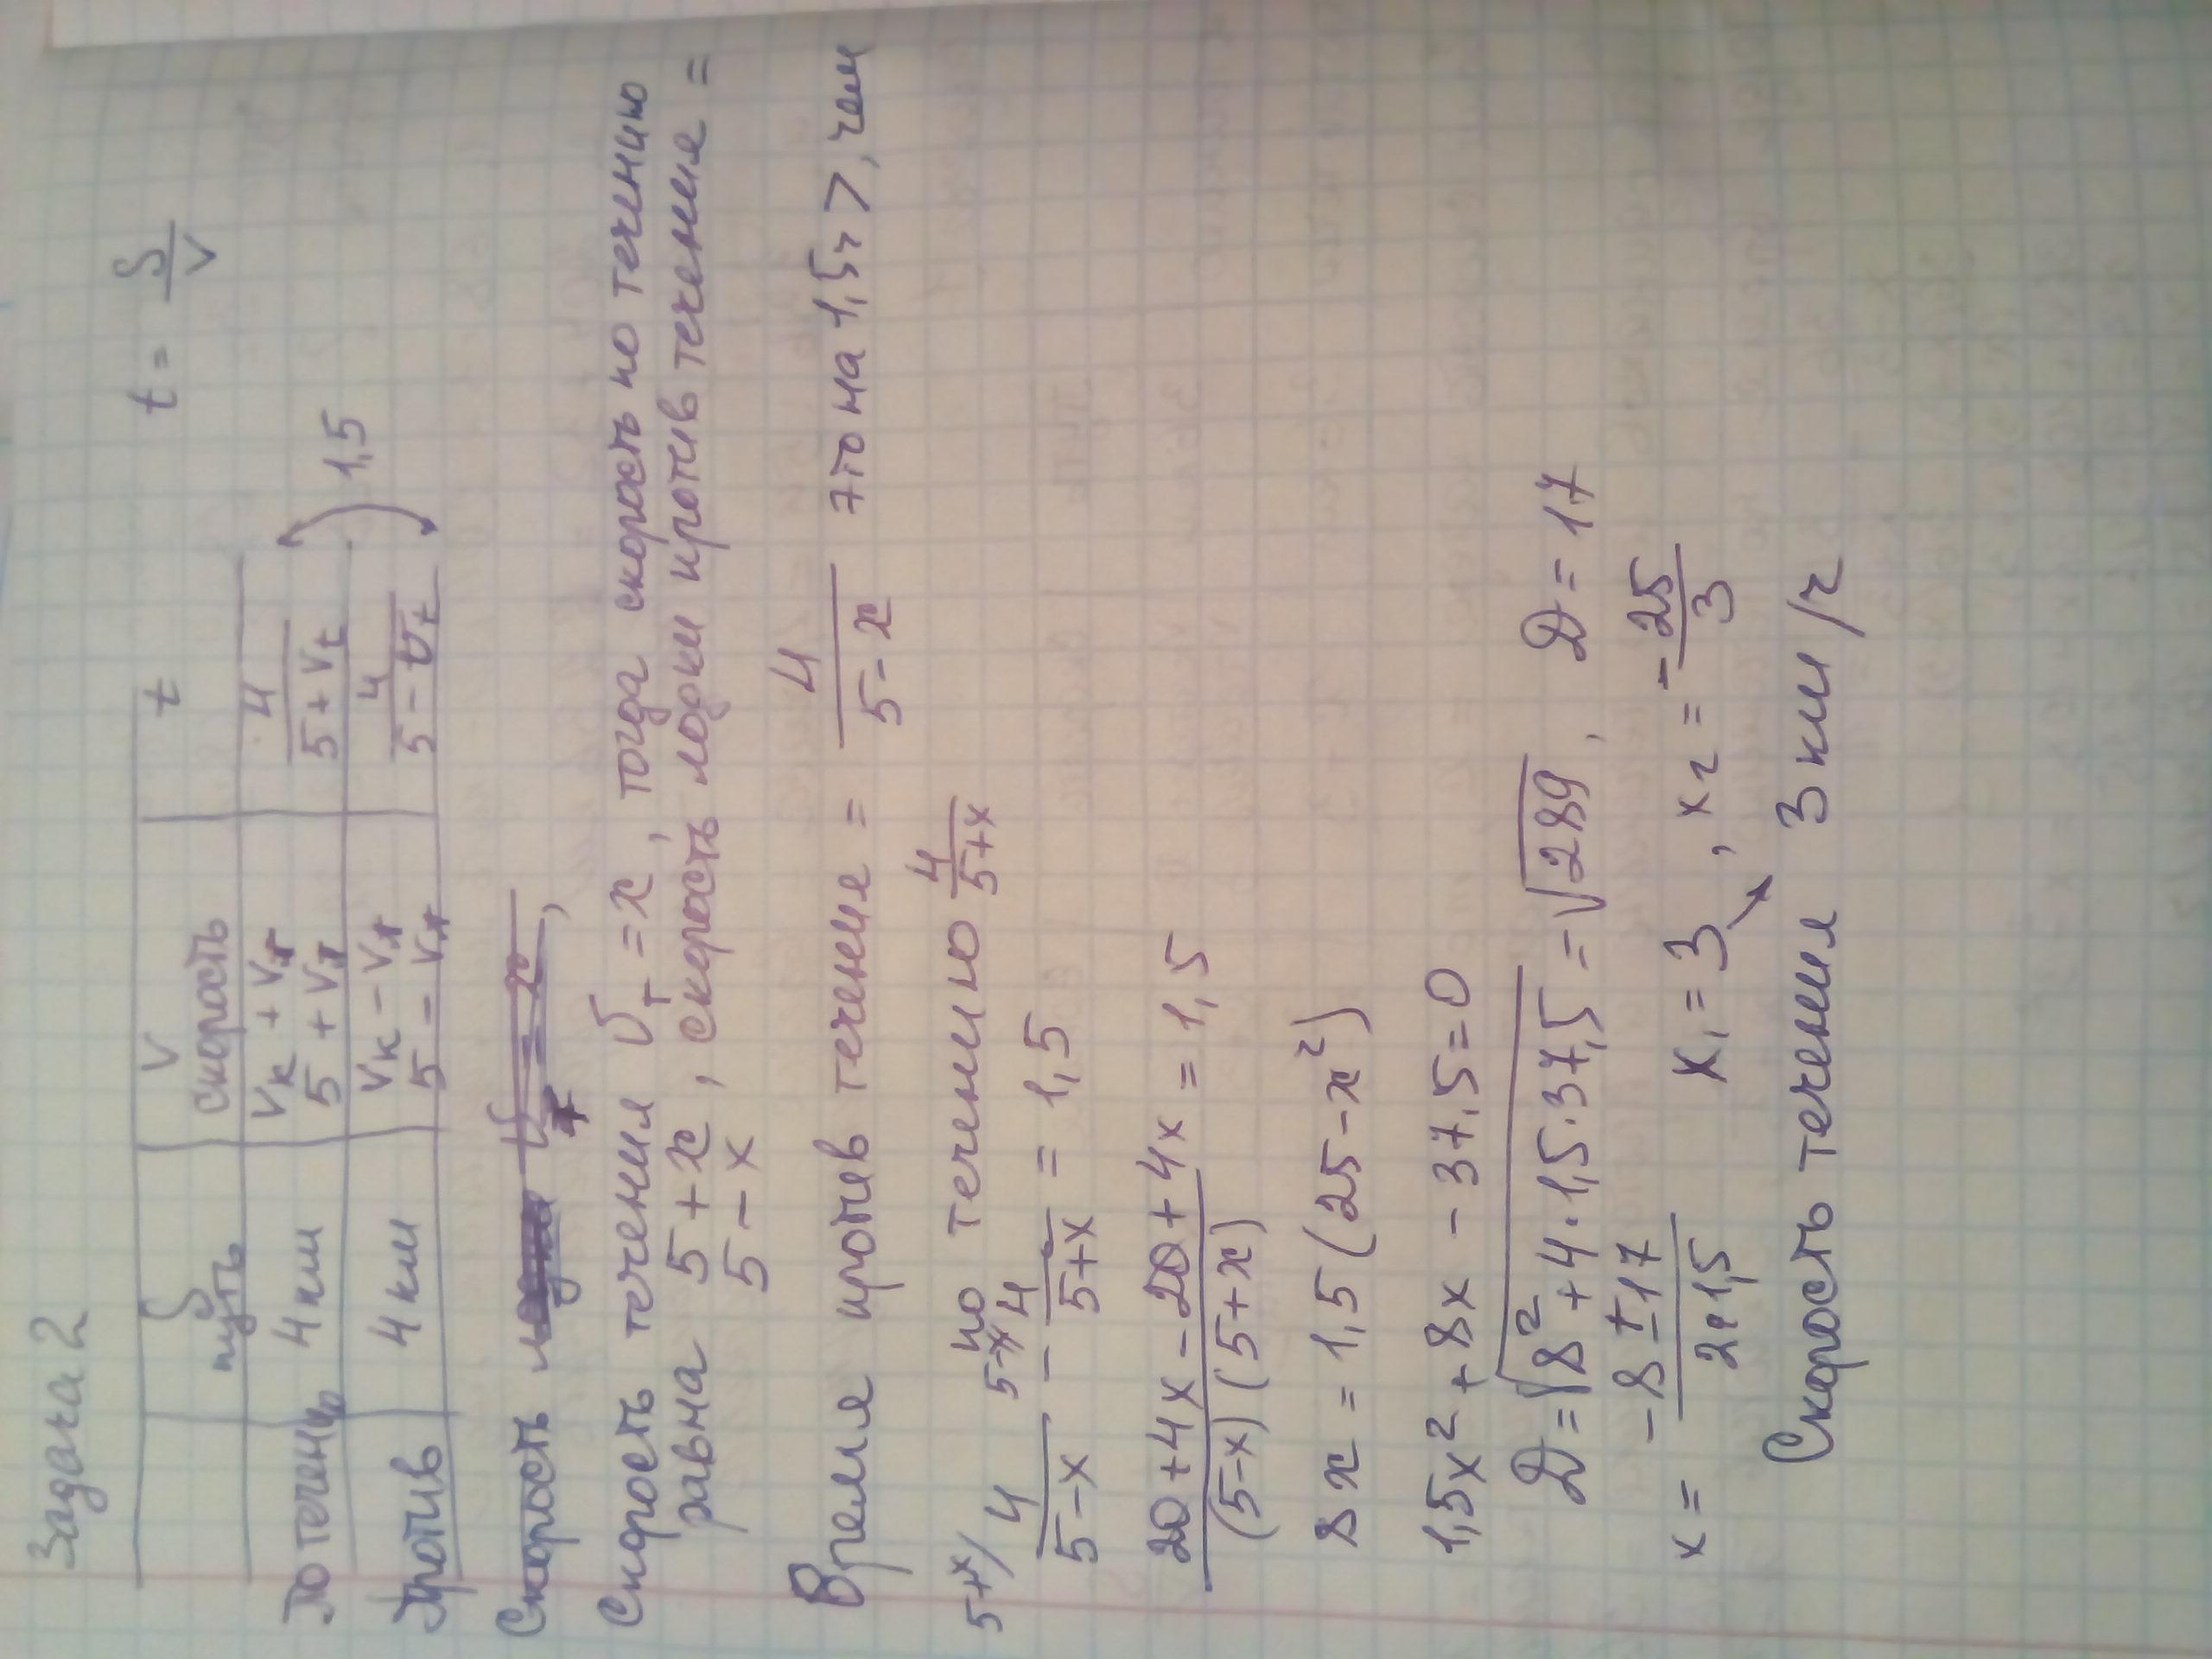 Задача 2
S путь V скорость t t = S/V
По течению 4 км Vк + Vт 5 + Vт 4/(5 + Vt) 1,5
Против 4 км Vк - Vт 5 - Vт 4/(5 - Vt)
Скорость Vт = x,
Скорость течения Vт = x, тогда скорость по течению
равна 5 + x, скорость лодки против течение =
5 - x
Время против течение = 4/(5 - x) это на 1,5ч >, чем
по течению 4/(5+x)
5+x/ 4/(5-x) - 5-x/ 4/(5+x) = 1,5
(20 + 4x - 20 + 4x)/((5-x)(5+x)) = 1,5
8x = 1,5(25 - x²)
1,5x² + 8x - 37,5 = 0
D = √(8² + 4·1,5·37,5) = √289, D = 17
x = (-8 ± 17)/(2·1,5) x₁ = 3, x₂ = -25/3
Скорость течения 3 км/ч